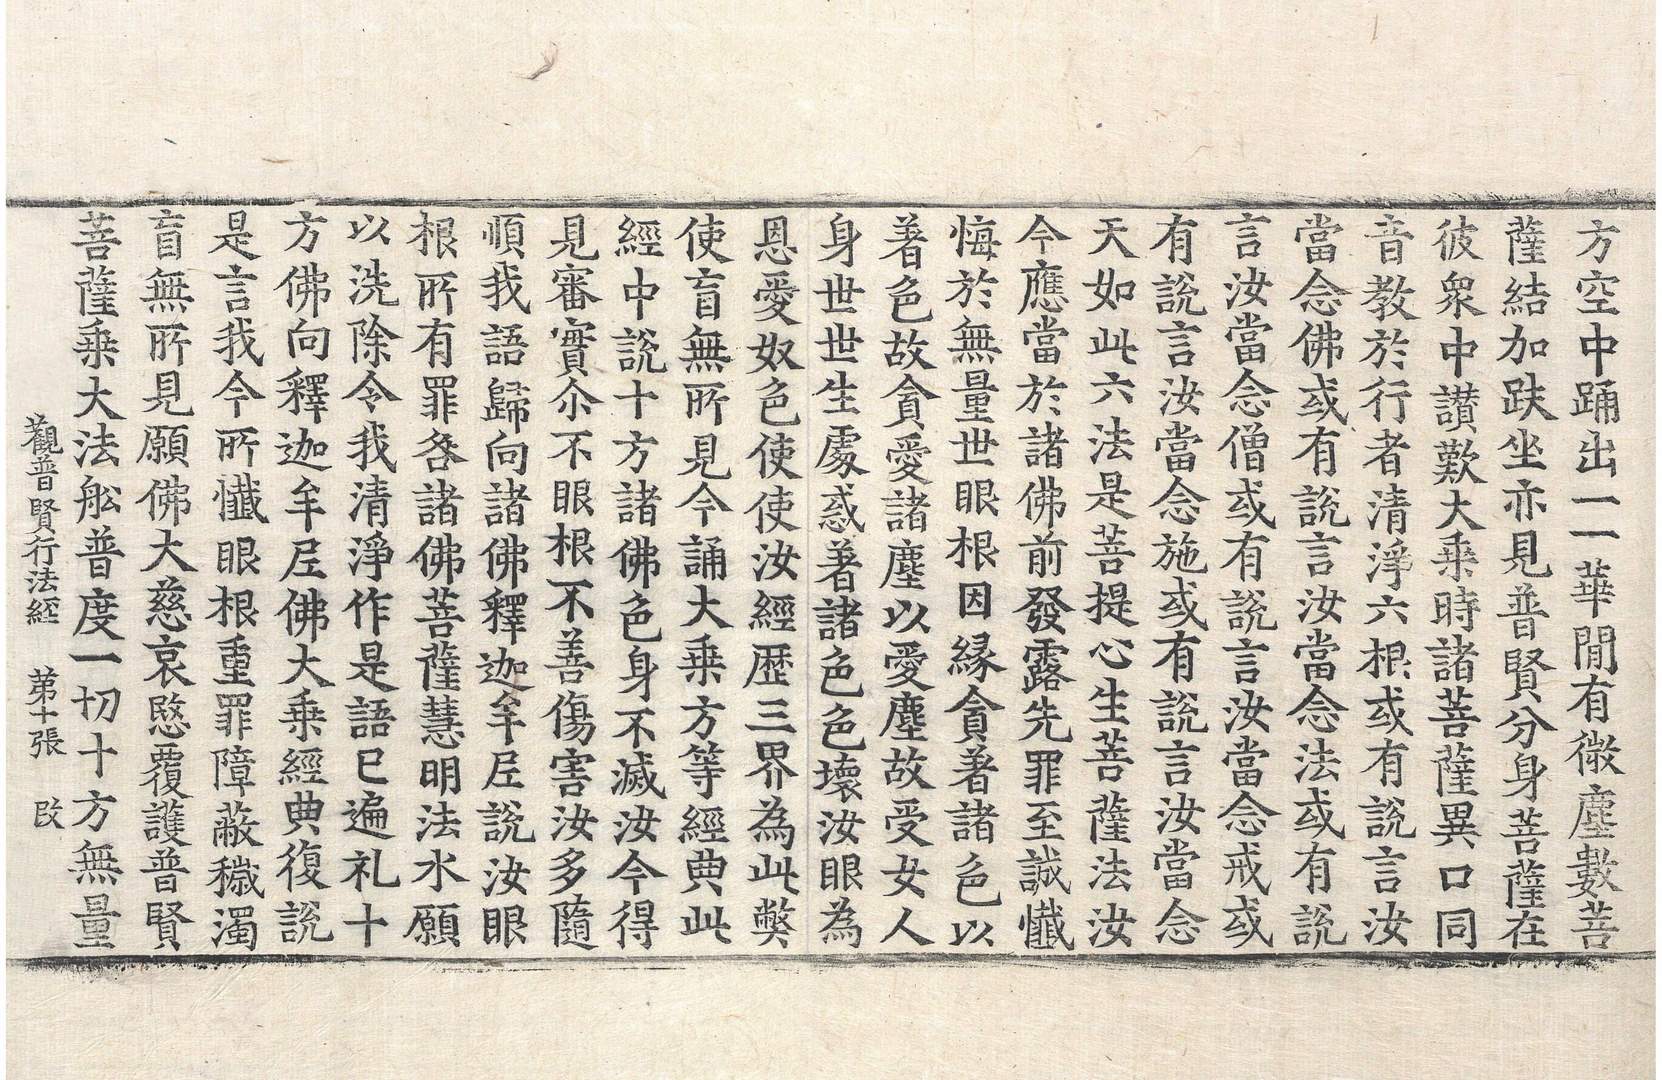 方空中踊出一一華閒有微塵數菩
薩結加趺坐亦見普賢分身菩薩在
彼衆中讃歎大乘時諸菩薩異口同
音教於行者清淨六根或有說言汝
當念佛或有說言汝當念法或有說
言汝當念僧或有說言汝當念戒或
有說言汝當念施或有說言汝當念
天如此六法是菩提心生菩薩法汝
今應當於諸佛前發露先罪至誠懺
悔於無量世眼根因緣貪著諸色以
著色故貪愛諸塵以愛塵故受女人
身世世生處惑著諸色色壞汝眼為
恩愛奴色使使汝經歷三界為此弊
使盲無所見今誦大乘方等經典此
經中說十方諸佛色身不滅汝今得
見審實尒不眼根不善傷害汝多隨
順我語歸向諸佛釋迦牟尼說汝眼
根所有罪咎諸佛菩薩慧明法水願
以洗除令我清淨作是語已遍礼十
方佛向釋迦牟尼佛大乘經典復說
是言我今所懺眼根重罪障蔽穢濁
盲無所見願佛大慈哀愍覆護普賢
菩薩乘大法舩普度一切十方無量
觀普賢行法經　第十張　改